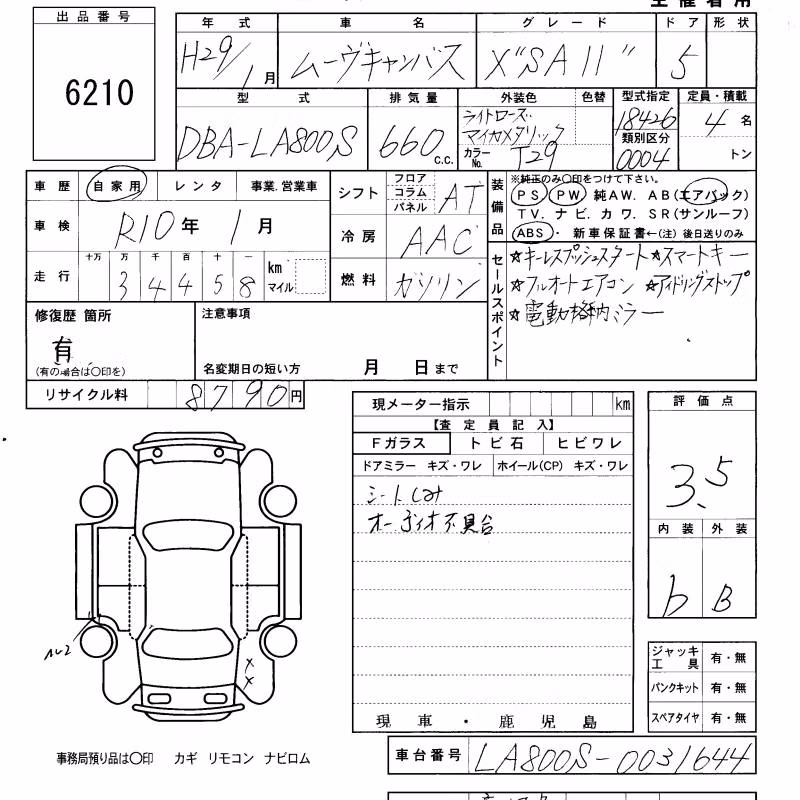 出品番号
6210
年式 車名 グレード ドア 形状
H29/1月 ムーヴキャンバス X"SAII" 5
型式 排気量 外装色 色替 型式指定 定員・積載
DBA-LA800S 660c.c. ライトローズ 18426 4名
マイカメタリック 類別区分
カラーNo. T29 0004 トン
車歴 自家用 レンタ 事業.営業車
シフト フロア コラム パネル AT
装備品
※純正のみ〇印をつけて下さい。
PS PW 純AW. AB(エアバック)
TV. ナビ. カワ. SR(サンルーフ)
ABS・ 新車保証書←(注)後日送りのみ
車検 R10年 1月
冷房 AAC
走行 十万 万 千 百 十 一
34458 km マイル
燃料 ガソリン
セールスポイント
☆キーレスプッシュスタート☆スマートキー
☆フルオートエアコン ☆アイドリングストップ
☆電動格納ミラー
修復歴 箇所
有
(有の場合は〇印を)
注意事項
名変期日の短い方 月 日まで
リサイクル料 8790円
現メーター指示 km
【査定員記入】
Fガラス トビ石 ヒビワレ
ドアミラー キズ・ワレ ホイール(CP) キズ・ワレ
シートしみ
オーディオ不具合
現車・鹿児島
評価点
3.5
内装 外装
b B
ジャッキ工具 有・無
パンクキット 有・無
スペアタイヤ 有・無
×
×
事務局預り品は〇印 カギ リモコン ナビロム
車台番号 LA800S-0031644